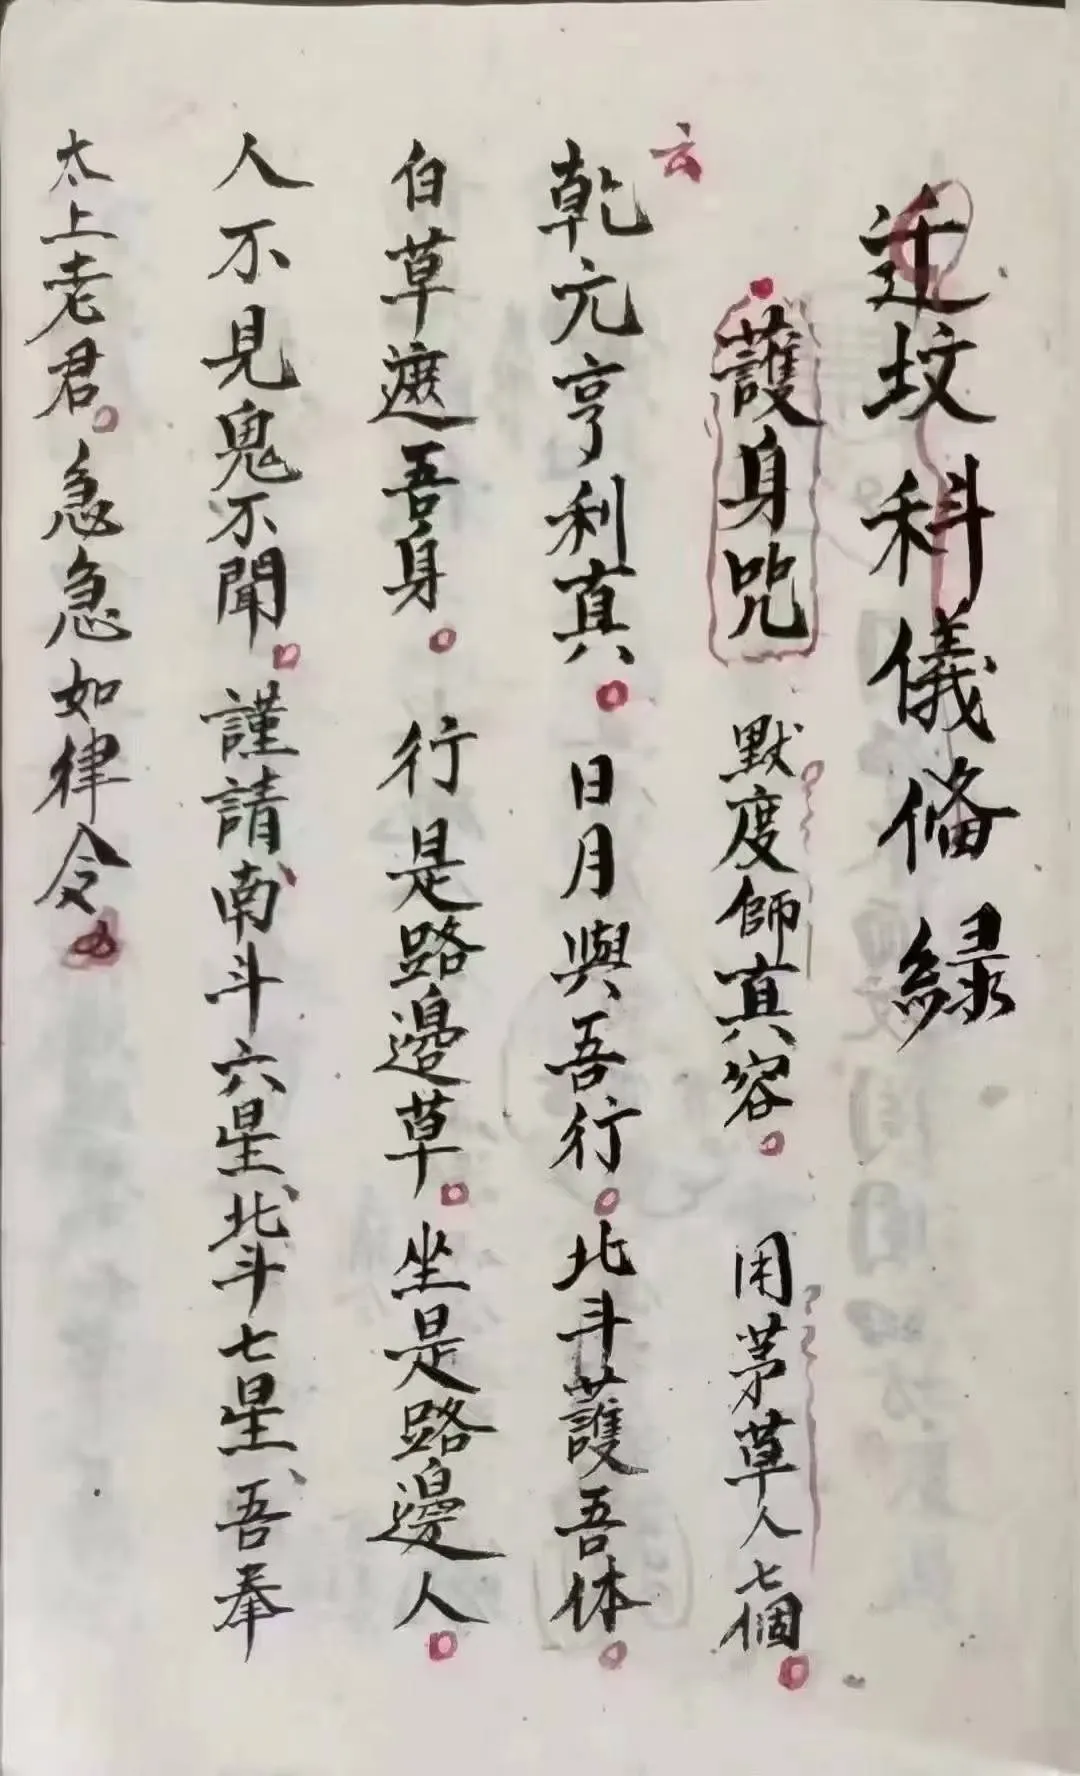 迁坟科儀俻綠
護身咒 默度師真容。 用茅草人七個。
云
乾元亨利真。日月與吾行。北斗護吾体。
白草遮吾身。行是路邊草。坐是路邊人。
人不見鬼不聞。謹請南斗六星、北斗七星、吾奉
太上老君。急急如律令。